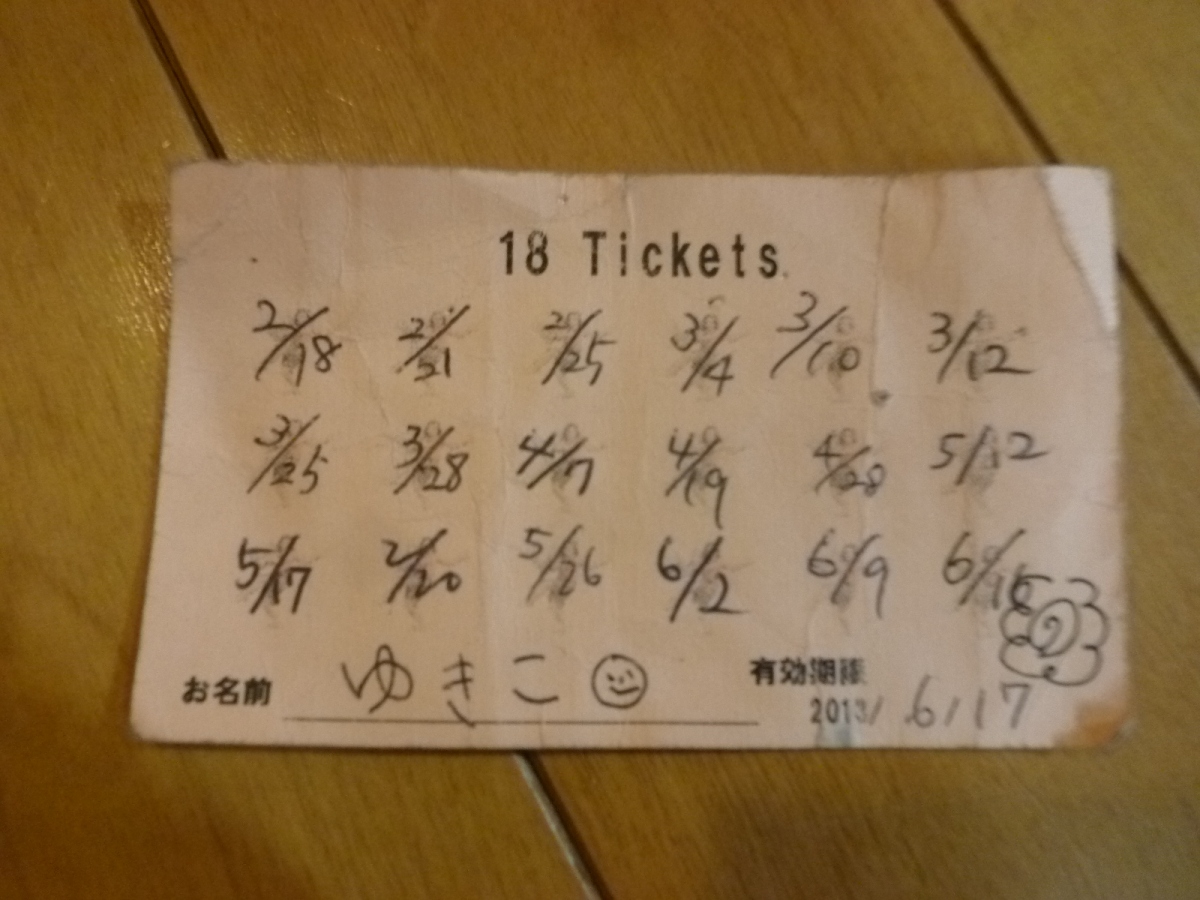 18 Tickets
2/18 2/21 2/25 3/4 3/10 3/12
3/25 3/28 4/7 4/19 4/28 5/12
5/17 2/20 5/26 6/2 6/9 6/16
お名前 ゆきこ 有効期限
2013/ 6/17